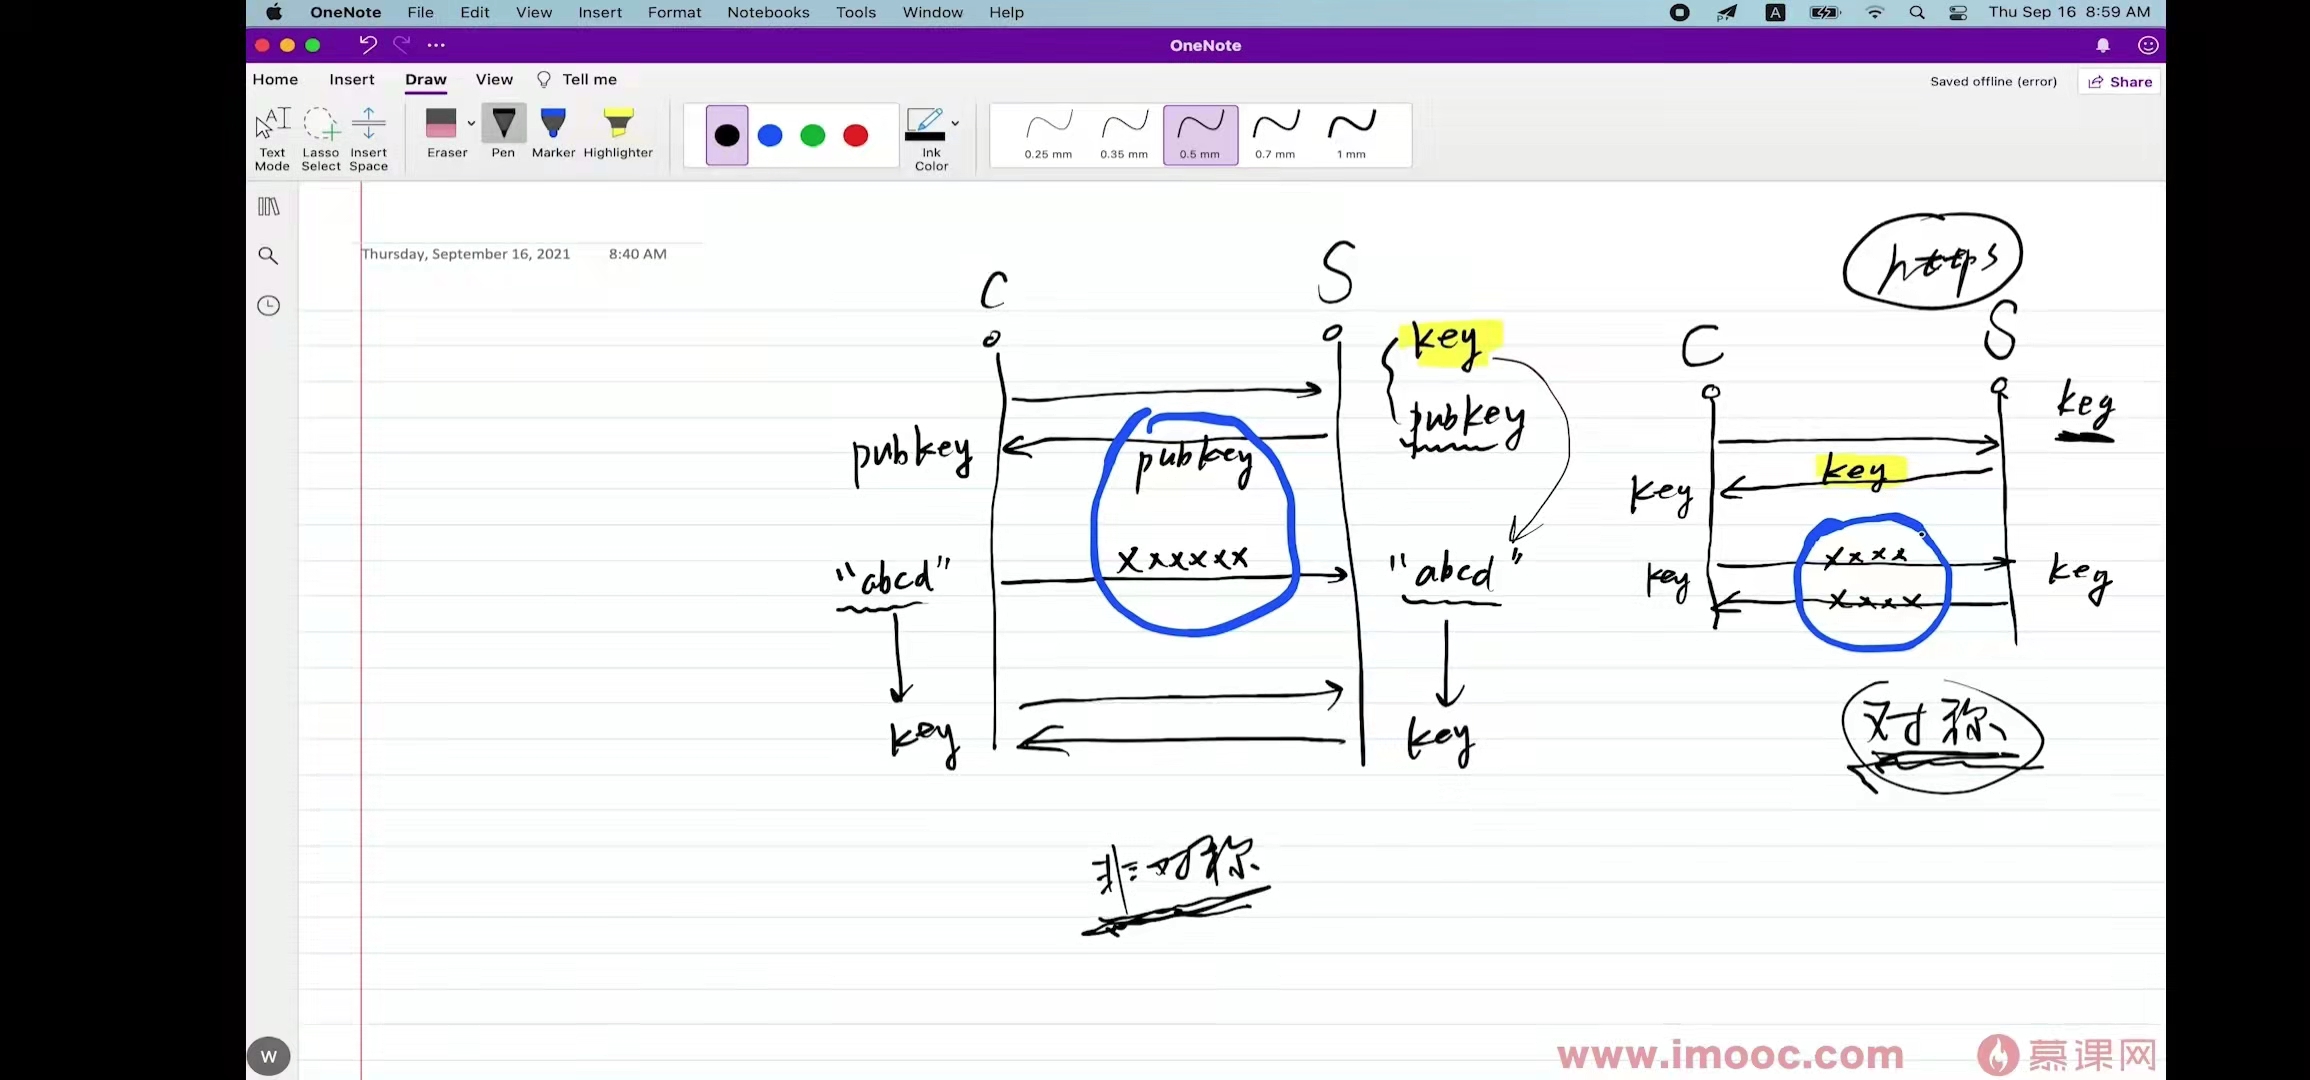 OneNote File Edit View Insert Format Notebooks Tools Window Help A Thu Sep 16 8:59 AM
OneNote
Home Insert Draw View Tell me Saved offline (error) Share
Text Mode Lasso Select Insert Space Eraser Pen Marker Highlighter Ink Color 0.25 mm 0.35 mm 0.5 mm 0.7 mm 1 mm
Thursday, September 16, 2021 8:40 AM
C S
key
pubkey
pubkey pubkey
xxxxxx
"abcd" "abcd"
key key
非对称
https
C S
key
key
key
xxxx
key key
xxxx
对称
W
www.imooc.com 慕课网